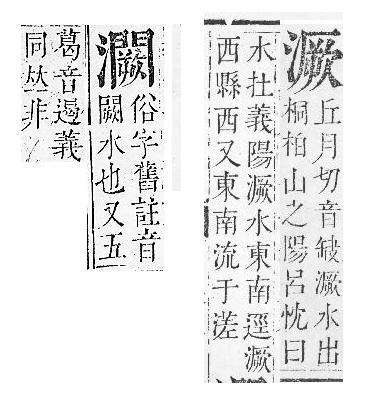 㵐
丘月切音缺㵐水出
桐柏山之陽呂忱曰
水扗義陽㵐水東南逕㵐
西縣西又東南流于溠
灍
俗字舊註音
闕水也又五
葛音遏義
同𠀤非